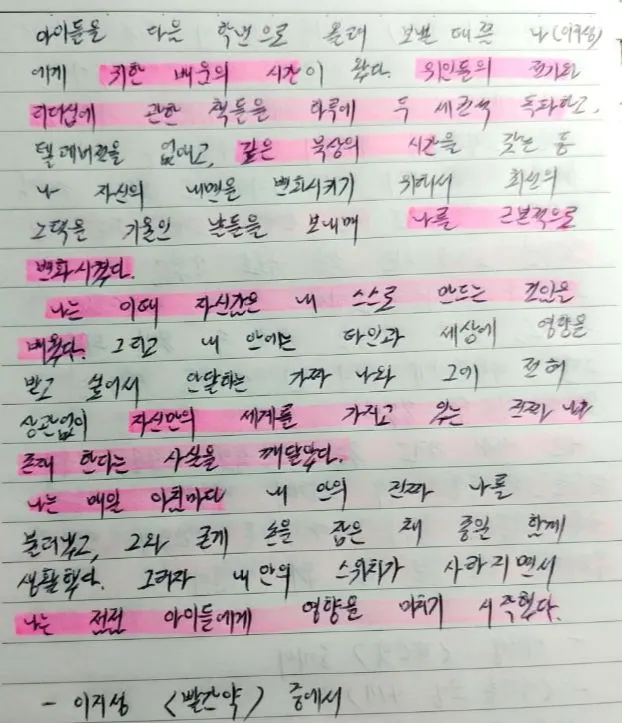 아이들을 다음 학년으로 올려 보낼 때쯤 나(이지성)
에게 귀한 배움의 시간이 왔다. 위인들의 전기와
리더십에 관한 책들을 하루에 두 세권씩 독파하고,
텔레비전을 없애고, 깊은 묵상의 시간을 갖는 등
나 자신의 내면을 변화시키기 위해서 최선의
노력을 기울인 날들을 보내며 나를 근본적으로
변화시켰다.
나는 이때 자신감은 내 스스로 만드는 것임을
배웠다. 그리고 내 안에는 타인과 세상에 영향을
받고 싶어서 안달하는 가짜 나와 그에 전혀
상관없이 자신만의 세계를 가지고 있는 진짜 내가
존재 한다는 사실을 깨달았다.
나는 매일 아침마다 내 안의 진짜 나를
불러냈고, 그와 굳게 손을 잡은 채 종일 함께
생활했다. 그러자 내 안의 스위치가 사라지면서
나는 점점 아이들에게 영향을 미치기 시작했다.
- 이지성 <빨간약> 중에서